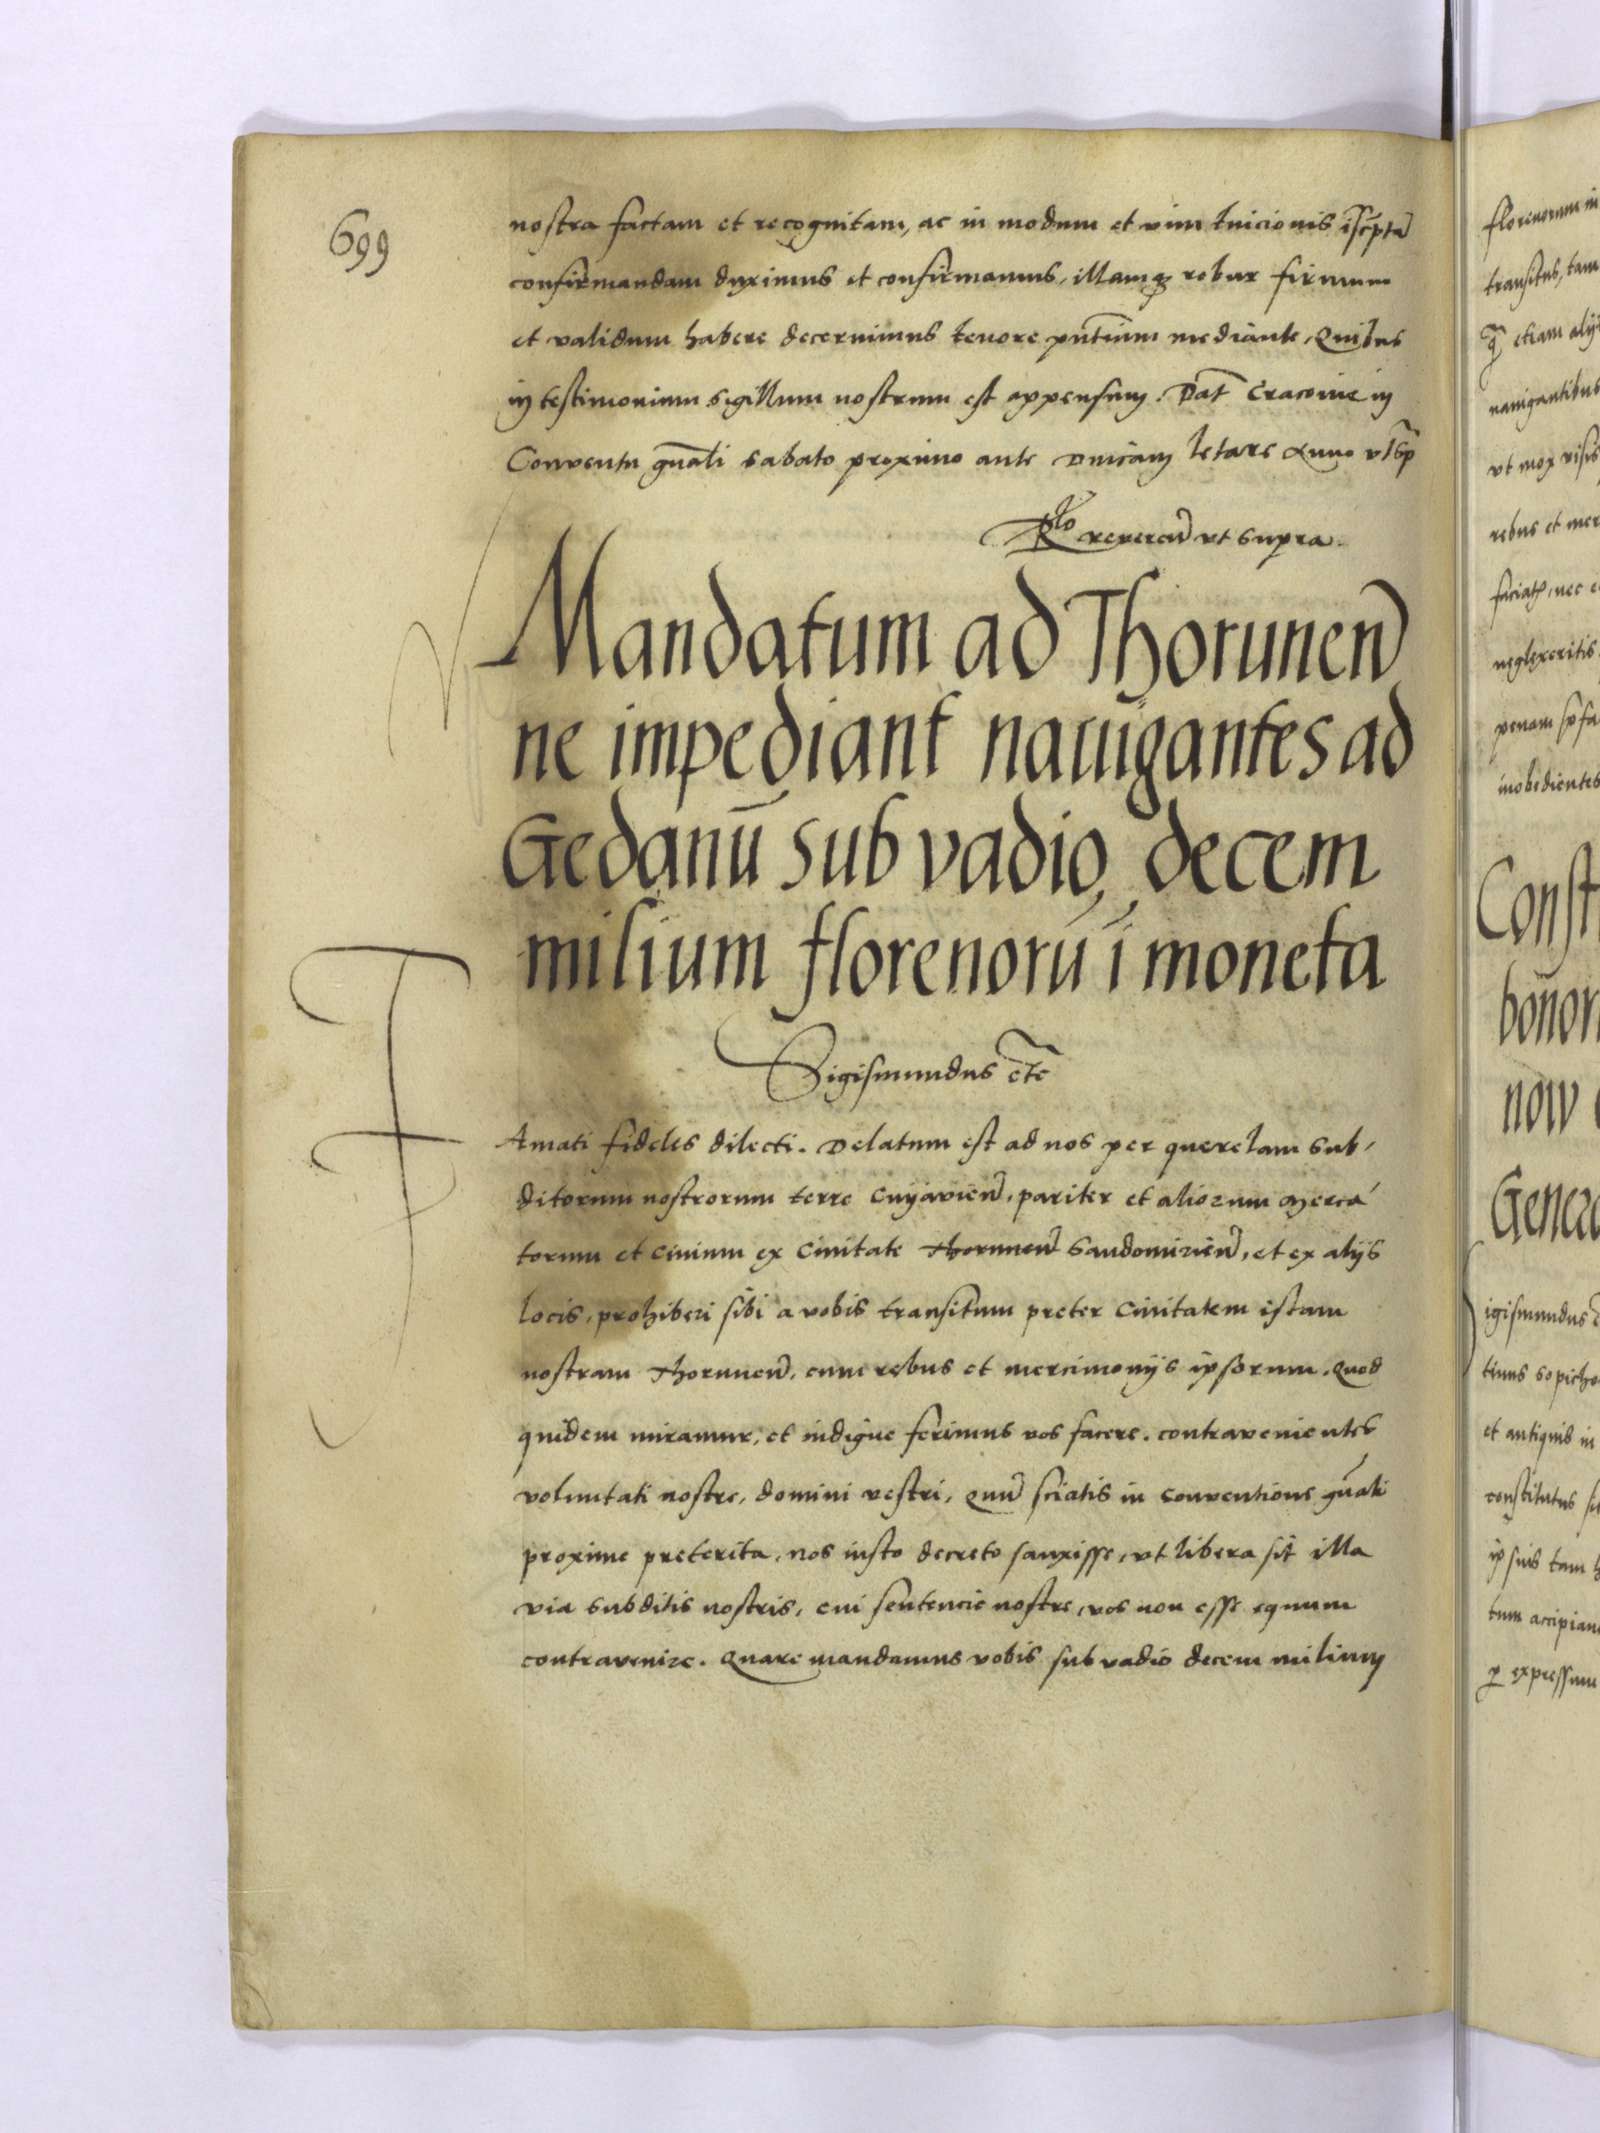 699
nostra factam et recognitam, ac in modum et vim tuicionis iscptā
confirmandam duximus et confirmamus, illamqꝫ robur firmum
et validum habere decernimus tenore pn̄tium mediante, Quibus
in testimonium sigillum nostrum est appensum. Dat̄ Cracovie in
Conventu gn̄ali sabato proximo ante Dnicam letare Anno vt sp̄
Rlo reverend̄ vt supra.
Mandatum ad Thorunen̄
ne impediant navigantes ad
Gedanū sub vadio decem
milium florenorū ī moneta
Sigismundus etc̄
Amati fideles dilecti. Delatum est ad nos per querelam sub,
ditorum nostrorum terre Cuyavien̄, pariter et aliorum Merca,
torum et Civium ex Civitate Thorunen̄ Sandomirien̄, et ex alijs
locis, prohiberi sibi a vobis transitum preter Civitatem istam
nostram Thorunen̄, cum rebus et mercimonijs ipsorum. Quod
quidem miramur, et indigne ferimus vos facere, contravenientes
voluntati nostre, domini vestri, Qum̄ sciatis in Conventione gn̄ali
proxime preterita, nos iusto decreto sanxisse, vt libera sit illa
via subditis nostris, cui sentencie nostre, vos non esse equum
contravenire. Quare mandamus vobis sub vadio decem milium
florenorum in
transitus, tam
etiam alijs
navigantibus
vt mox visis
rebus et mer
faciat, nec
neglexeritis
penam
inobedientes
Const
bonor
now
Genera
igismundus
tinus sopicho
et antiquis in
constitutus
ipsius tam
tum accipian
expressum